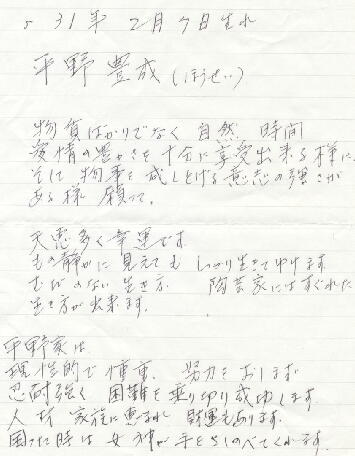 S 31年 2月7日生れ
平野 豊成 (ほうせい)
物質ばかりでなく 自然 時間
愛情の豊かさを十分に享受出来る様に
そして 物事を成しとげる意志の強さが
ある様 願って。
天恵多く幸運です
もの静かに見えても しっかり生きてゆけます
むだのない生き方 陶芸家にはすぐれた
生き方が出来ます。
平野家は
理性的で慎重 努力をおします
忍耐強く 困難を乗り切り成功します
人材 家族に恵まれ 財運もあります。
困った時は女神が手をさしのべてくれます。